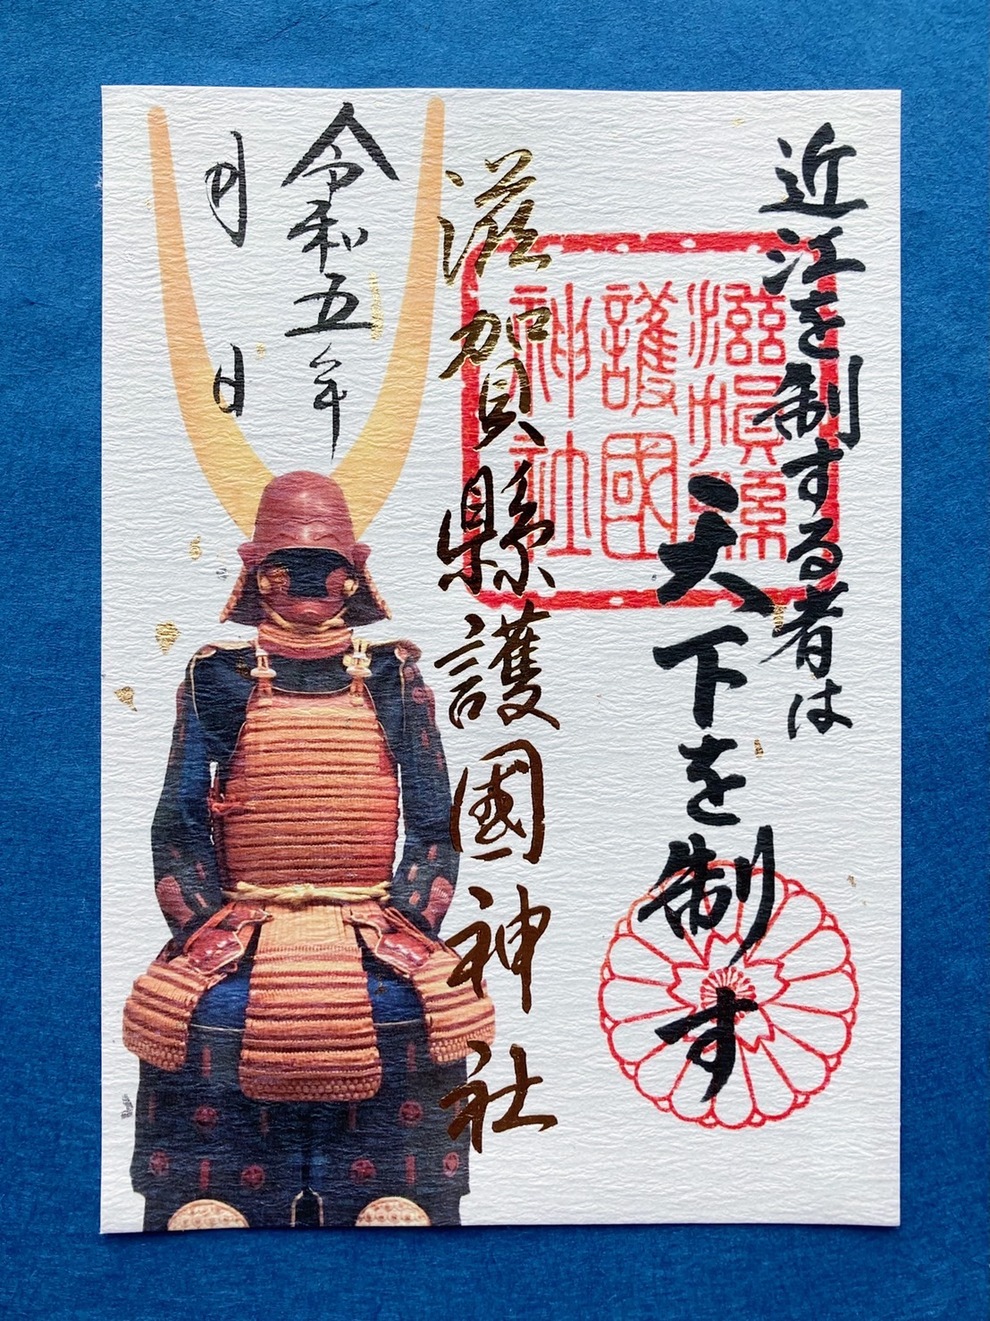 近江を制する者は
天下を制す
滋賀縣護國神社
滋賀縣
護國
神社
令和五年
月 日